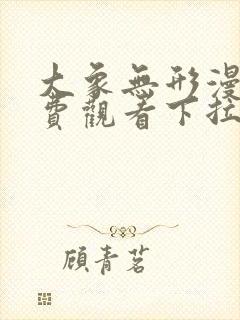 大象無形漫
費觀看下拉
顧青茗